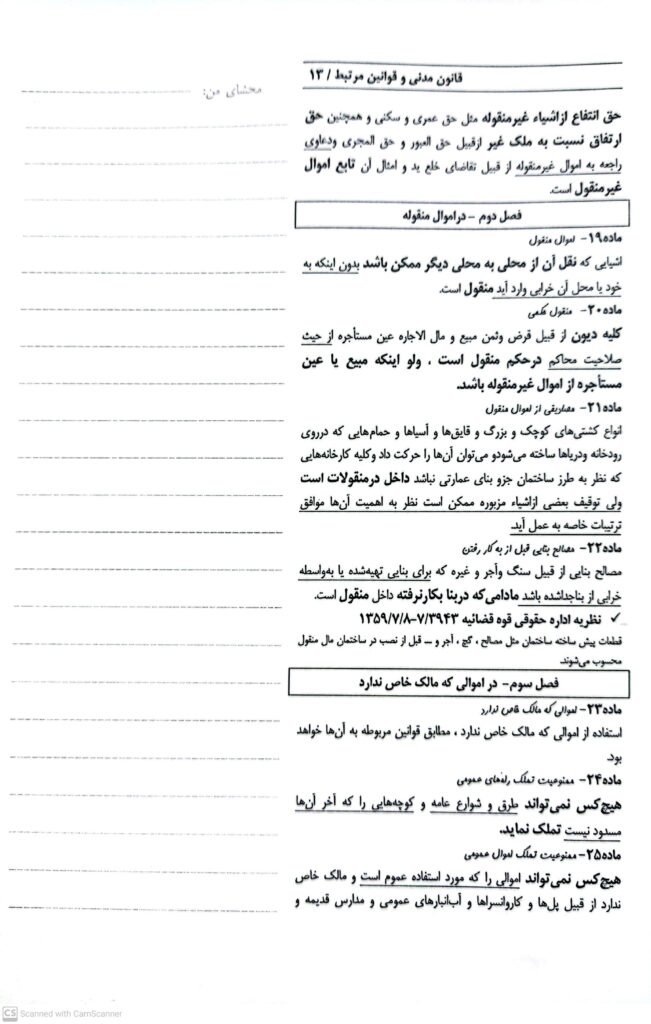 قانون مدنی و قوانین مرتبط / ۱۳
محشای من:
حق انتفاع ازاشیاء غیرمنقوله مثل حق عمری و سکنی و همچنین حق
ارتفاق نسبت به ملک غیر ازقبیل حق العبور و حق المجری ودعاوی
راجعه به اموال غیرمنقوله از قبیل تقاضای خلع ید و امثال آن تابع اموال
غیرمنقول است.
فصل دوم -دراموال منقوله
ماده۱۹- اموال منقول
اشیایی که نقل آن از محلی به محلی دیگر ممکن باشد بدون اینکه به
خود یا محل آن خرابی وارد آید منقول است.
ماده۲۰- منقول حکمی
کلیه دیون از قبیل قرض وثمن مبیع و مال الاجاره عین مستأجره از حیث
صلاحیت محاکم درحکم منقول است ، ولو اینکه مبیع یا عین
مستأجره از اموال غیرمنقوله باشد.
ماده۲۱- مصادیقی از اموال منقول
انواع کشتی‌های کوچک و بزرگ و قایق‌ها و آسیاها و حمام‌هایی که درروی
رودخانه ودریاها ساخته می‌شودو می‌توان آن‌ها را حرکت داد وکلیه کارخانه‌هایی
که نظر به طرز ساختمان جزو بنای عمارتی نباشد داخل درمنقولات است
ولی توقیف بعضی ازاشیاء مزبوره ممکن است نظر به اهمیت آن‌ها موافق
ترتیبات خاصه به عمل آید.
ماده۲۲- مصالح بنایی قبل از به کار رفتن
مصالح بنایی از قبیل سنگ وآجر و غیره که برای بنایی تهیه‌شده یا به‌واسطه
خرابی از بناجداشده باشد مادامی‌که دربنا بکارنرفته داخل منقول است.
✓ نظریه اداره حقوقی قوه قضائیه ۷/۳۹۴۳-۱۳۵۹/۷/۸
قطعات پیش ساخته ساختمان مثل مصالح ، گچ ، آجر و ... قبل از نصب در ساختمان مال منقول
محسوب می‌شوند.
فصل سوم- در اموالی که مالک خاص ندارد
ماده۲۳- اموالی که مالک خاص ندارد
استفاده از اموالی که مالک خاص ندارد ، مطابق قوانین مربوطه به آن‌ها خواهد
بود.
ماده۲۴- ممنوعیت تملک راه‌های عمومی
هیچ‌کس نمی‌تواند طرق و شوارع عامه و کوچه‌هایی را که آخر آن‌ها
مسدود نیست تملک نماید.
ماده۲۵- ممنوعیت تملک اموال عمومی
هیچ‌کس نمی‌تواند اموالی را که مورد استفاده عموم است و مالک خاص
ندارد از قبیل پل‌ها و کاروانسراها و آب‌انبارهای عمومی و مدارس قدیمه و
CS Scanned with CamScanner